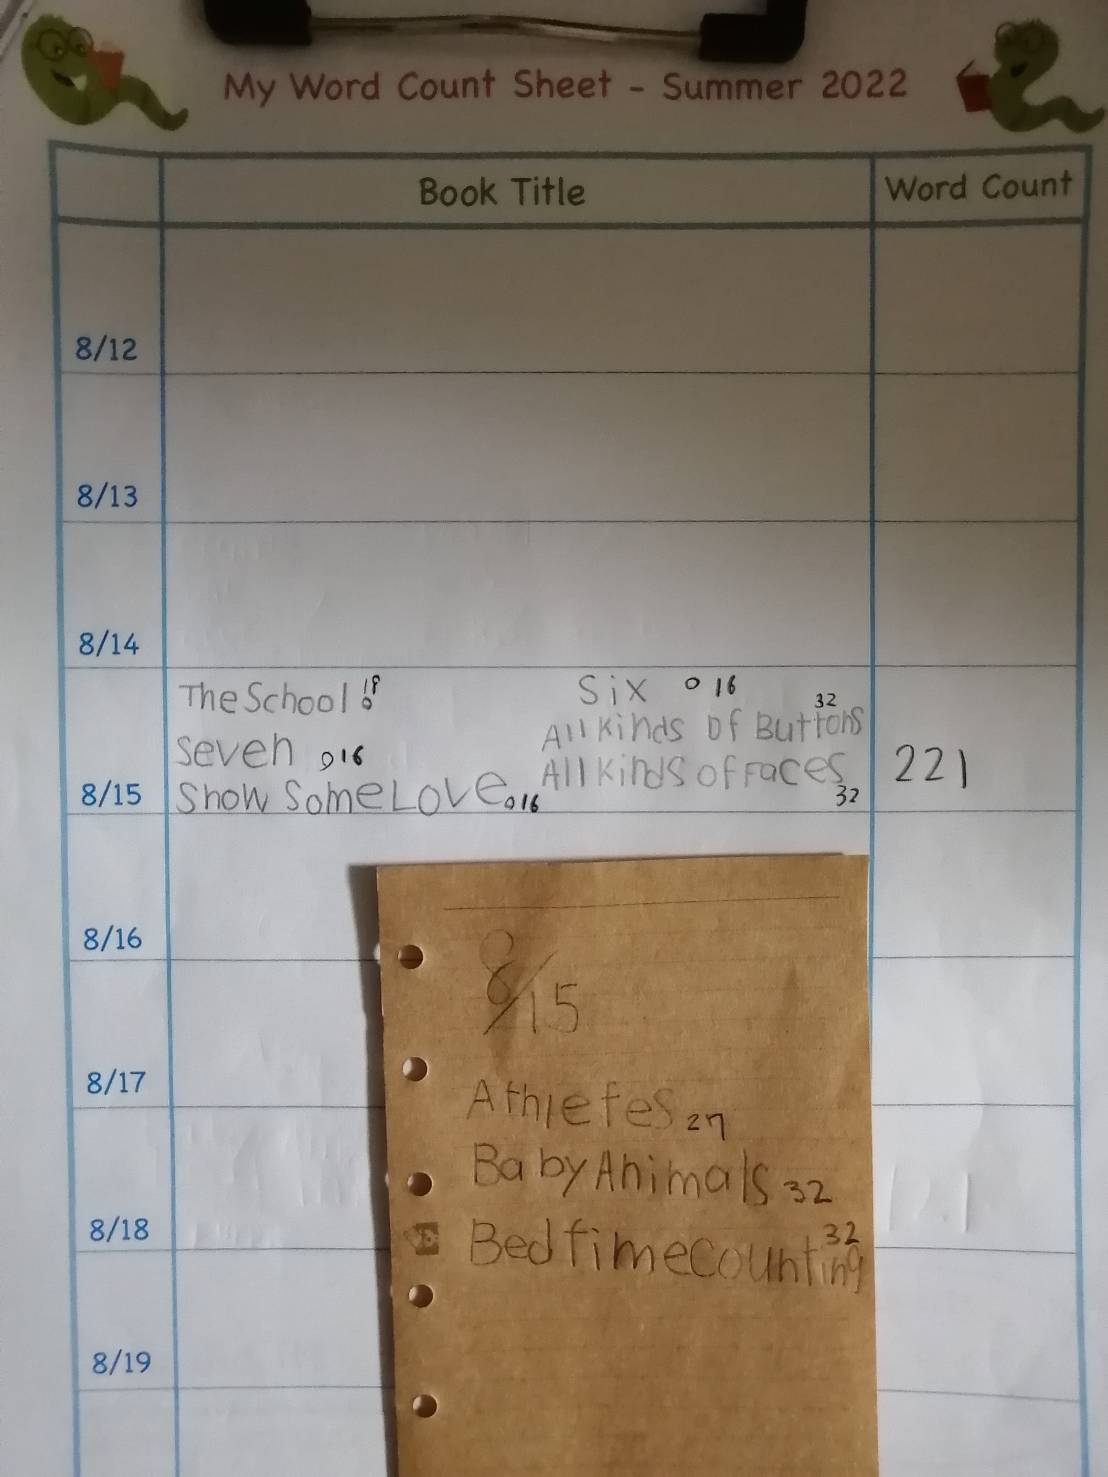 My Word Count Sheet - Summer 2022
Book Title
Word Count
8/12
8/13
8/14
8/15
The School 18
Seven 16
Show Some Love 16
Six 16
All Kinds of Buttons 32
All Kinds of Faces 32
221
8/16
8/17
8/18
8/19
8/15
Athletes 27
Baby Animals 32
Bedtime counting 32